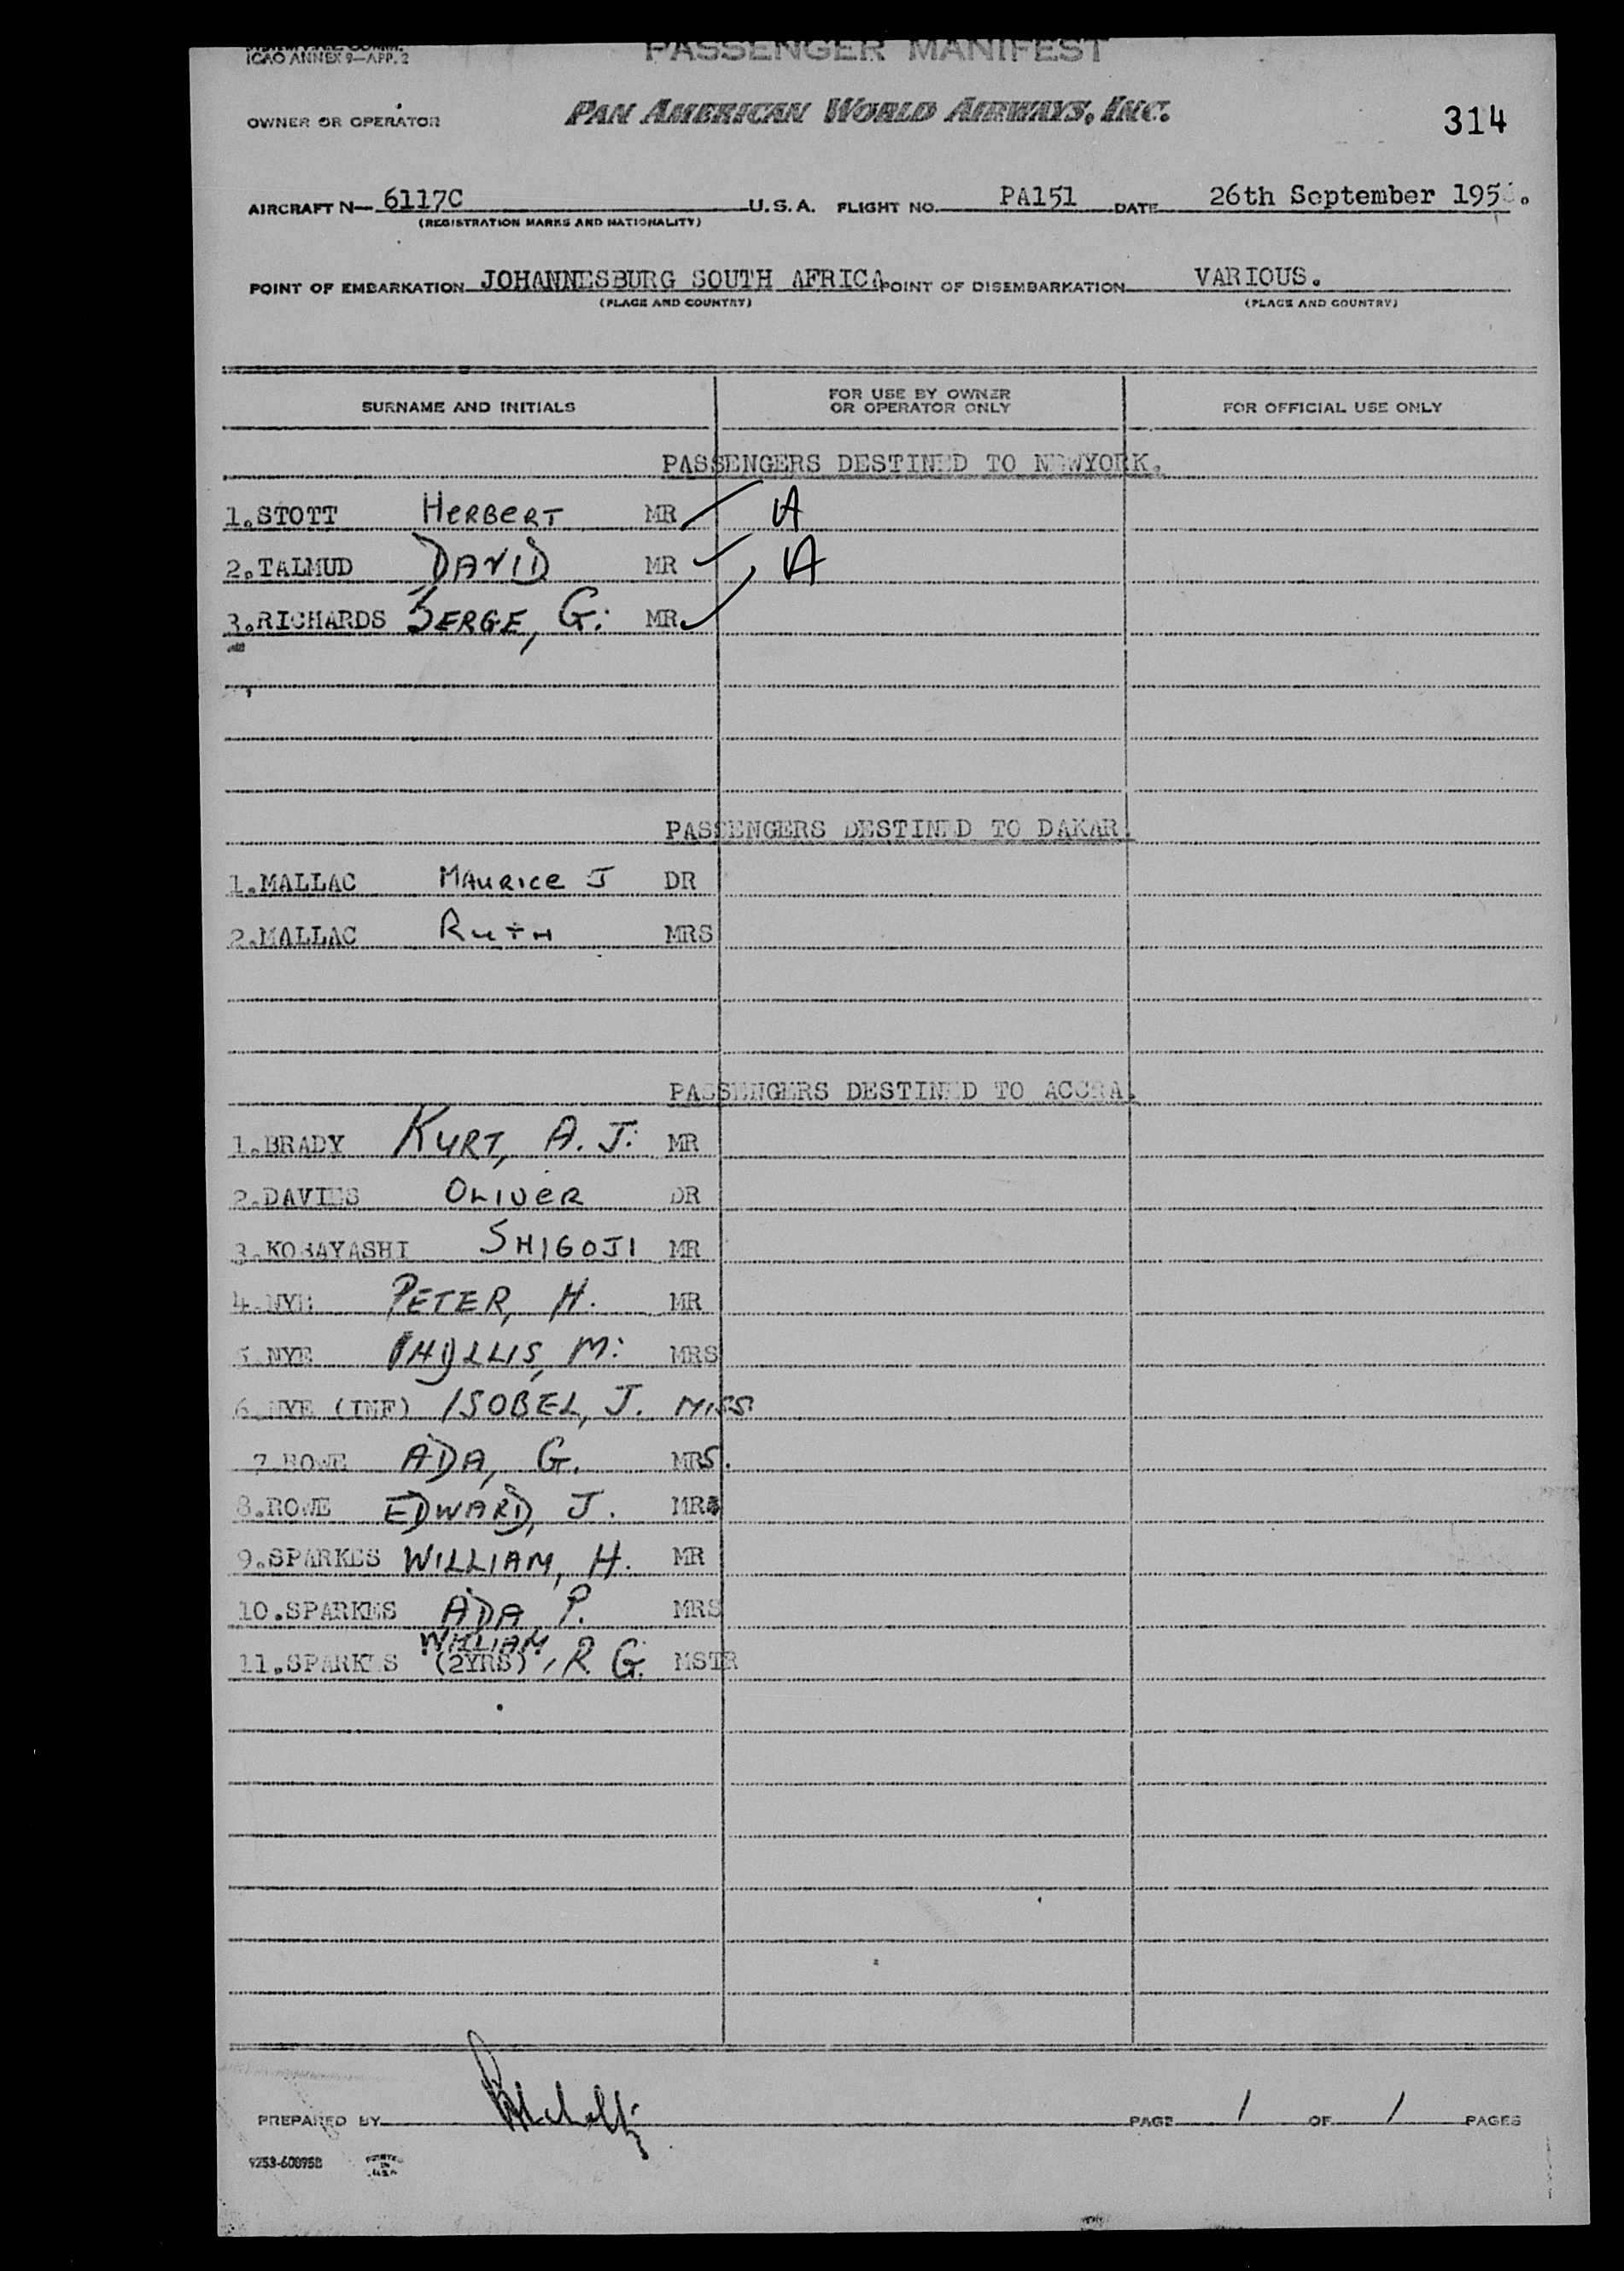 ICAO ANNEX 9—APP. 2
PASSENGER MANIFEST
OWNER OR OPERATOR PAN AMERICAN WORLD AIRWAYS, INC. 314
AIRCRAFT N— 6117C U.S.A. FLIGHT NO. PA151 DATE 26th September 195
(REGISTRATION MARKS AND NATIONALITY)
POINT OF EMBARKATION JOHANNESBURG SOUTH AFRICA POINT OF DISEMBARKATION VARIOUS.
(PLACE AND COUNTRY) (PLACE AND COUNTRY)
SURNAME AND INITIALS FOR USE BY OWNER OR OPERATOR ONLY FOR OFFICIAL USE ONLY
PASSENGERS DESTINED TO NEWYORK.
1.STOTT HERBERT MR A
2.TALMUD DAVID MR A
3.RICHARDS SERGE, G. MR
PASSENGERS DESTINED TO DAKAR.
1.MALLAC MAURICE J DR
2.MALLAC RUTH MRS
PASSENGERS DESTINED TO ACCRA.
1.BRADY KURT, A. J. MR
2.DAVIES OLIVER DR
3.KOBAYASHI SHIGOJI MR
4.NYE PETER, H. MR
5.NYE PHYLLIS, M. MRS
6.NYE (INF) ISOBEL, J. MISS
7.ROWE ADA, G. MRS.
8.ROWE EDWARD, J. MR
9.SPARKES WILLIAM, H. MR
10.SPARKES ADA P. MRS
11.SPARKES WILLIAM (2YRS), R. G. MSTR
PREPARED BY PAGE 1 OF 1 PAGES
9253-600958 PRINTED IN U.S.A.